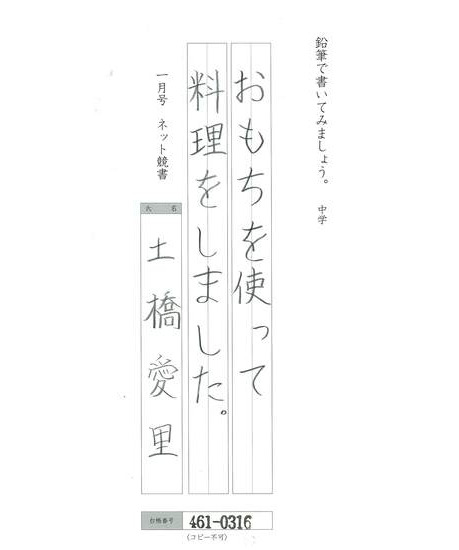 鉛筆で書いてみましょう。 中学
おもちを使って
料理をしました。
一月号 ネット競書
氏名
土橋愛里
台帳番号 461-0316
(コピー不可)